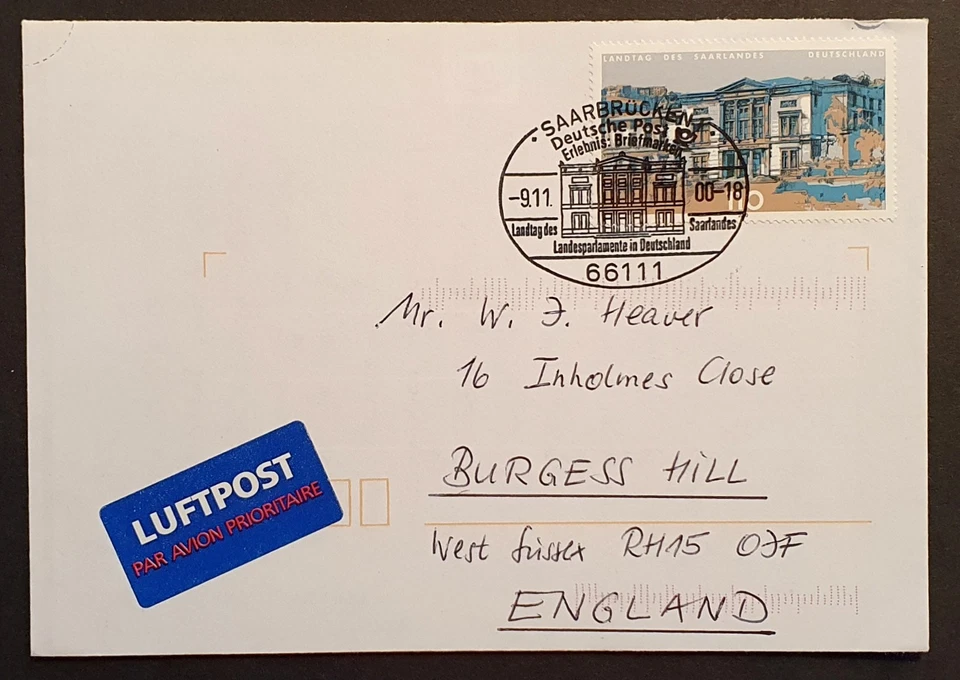 LANDTAG DES SAARLANDES DEUTSCHLAND
110
SAARBRÜCKEN 1
Deutsche Post
Erlebnis: Briefmarken
-9.11. 00-18
Landtag des Saarlandes
Landesparlamente in Deutschland
66111
Mr. W. J. Heaver
16 Inholmes Close
BURGESS HILL
West Sussex RH15 0JF
ENGLAND
LUFTPOST
PAR AVION PRIORITAIRE